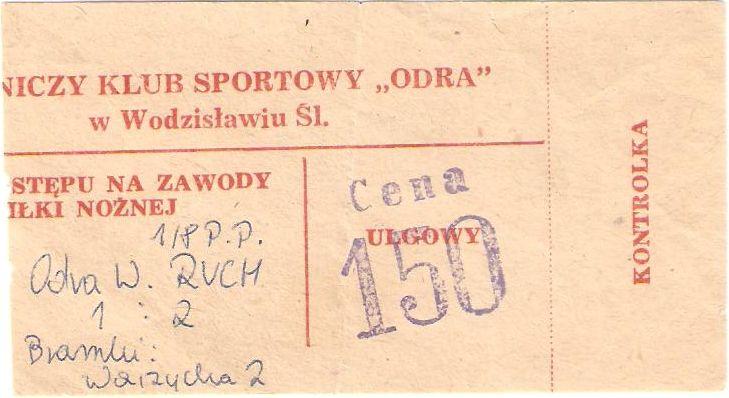 NICZY KLUB SPORTOWY „ODRA”
w Wodzisławiu Śl.
STĘPU NA ZAWODY
IŁKI NOŻNEJ
1/8 P.P.
Odra W. RUCH
1 : 2
Bramki:
Warzycha 2
Cena
ULGOWY
150
KONTROLKA